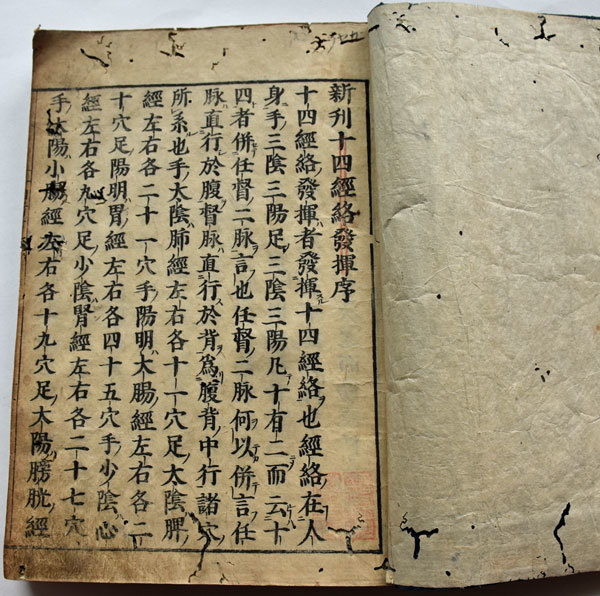 新刊十四經絡發揮序
十四經絡發揮者發揮十四經絡也經絡在人
身手三陰三陽足三陰三陽凡十有二而云十
四者併任督二脉言也任督二脉何以併言任
脉直行於腹督脉直行於背爲腹背中行諸穴
所系也手太陰肺經左右各十一穴足太陰脾
經左右各二十一穴手陽明大腸經左右各二
十穴足陽明胃經左右各四十五穴手少陰心
經左右各九穴足少陰腎經左右各二十七穴
手太陽小腸經左右各十九穴足太陽膀胱經